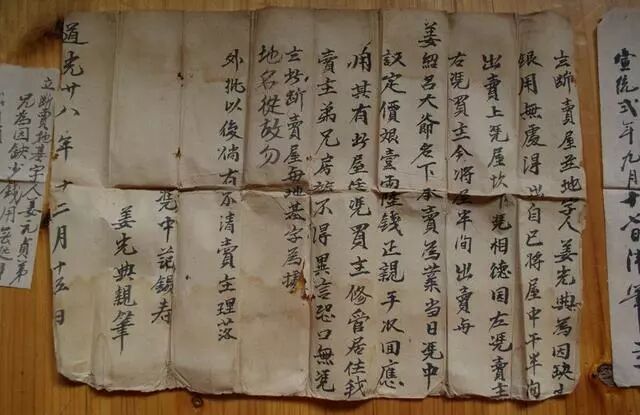 統弍年九月十
立斷賣屋並地字人姜光典為因缺
銀用無處得出自己將屋中下半间
出賣上凭屋坎下凭相德田左凭賣主
右凭買主今將屋半间出賣与
姜紹呂大爺名下承賣為業當日凭中
議定價銀壹両陸錢正親手收回應
用其有此屋任凭買主修管居住我
賣主弟兄房族不得異言恐口無凭
立此断賣屋与地基字為據
地名從故勿
外批以後倘右不清賣主理落
凭中 錫寿
姜光典親筆
道光廿八年十二月十五日
立斷賣地基字人姜元貞弟
兄為因缺少錢用